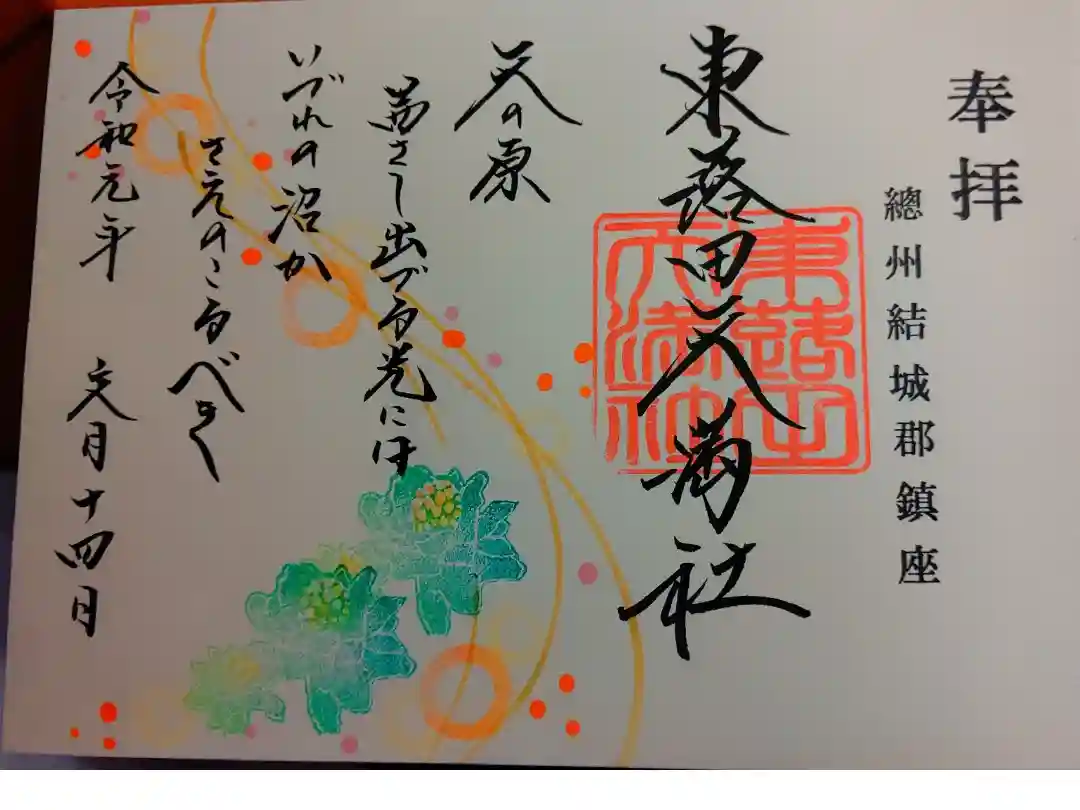 奉拝
總州結城郡鎮座
東蕗田天満社
東蕗田
天満社
天の原
茜さし出づる光には
いづれの沼か
さえのこるべき
令和元年 文月十四日